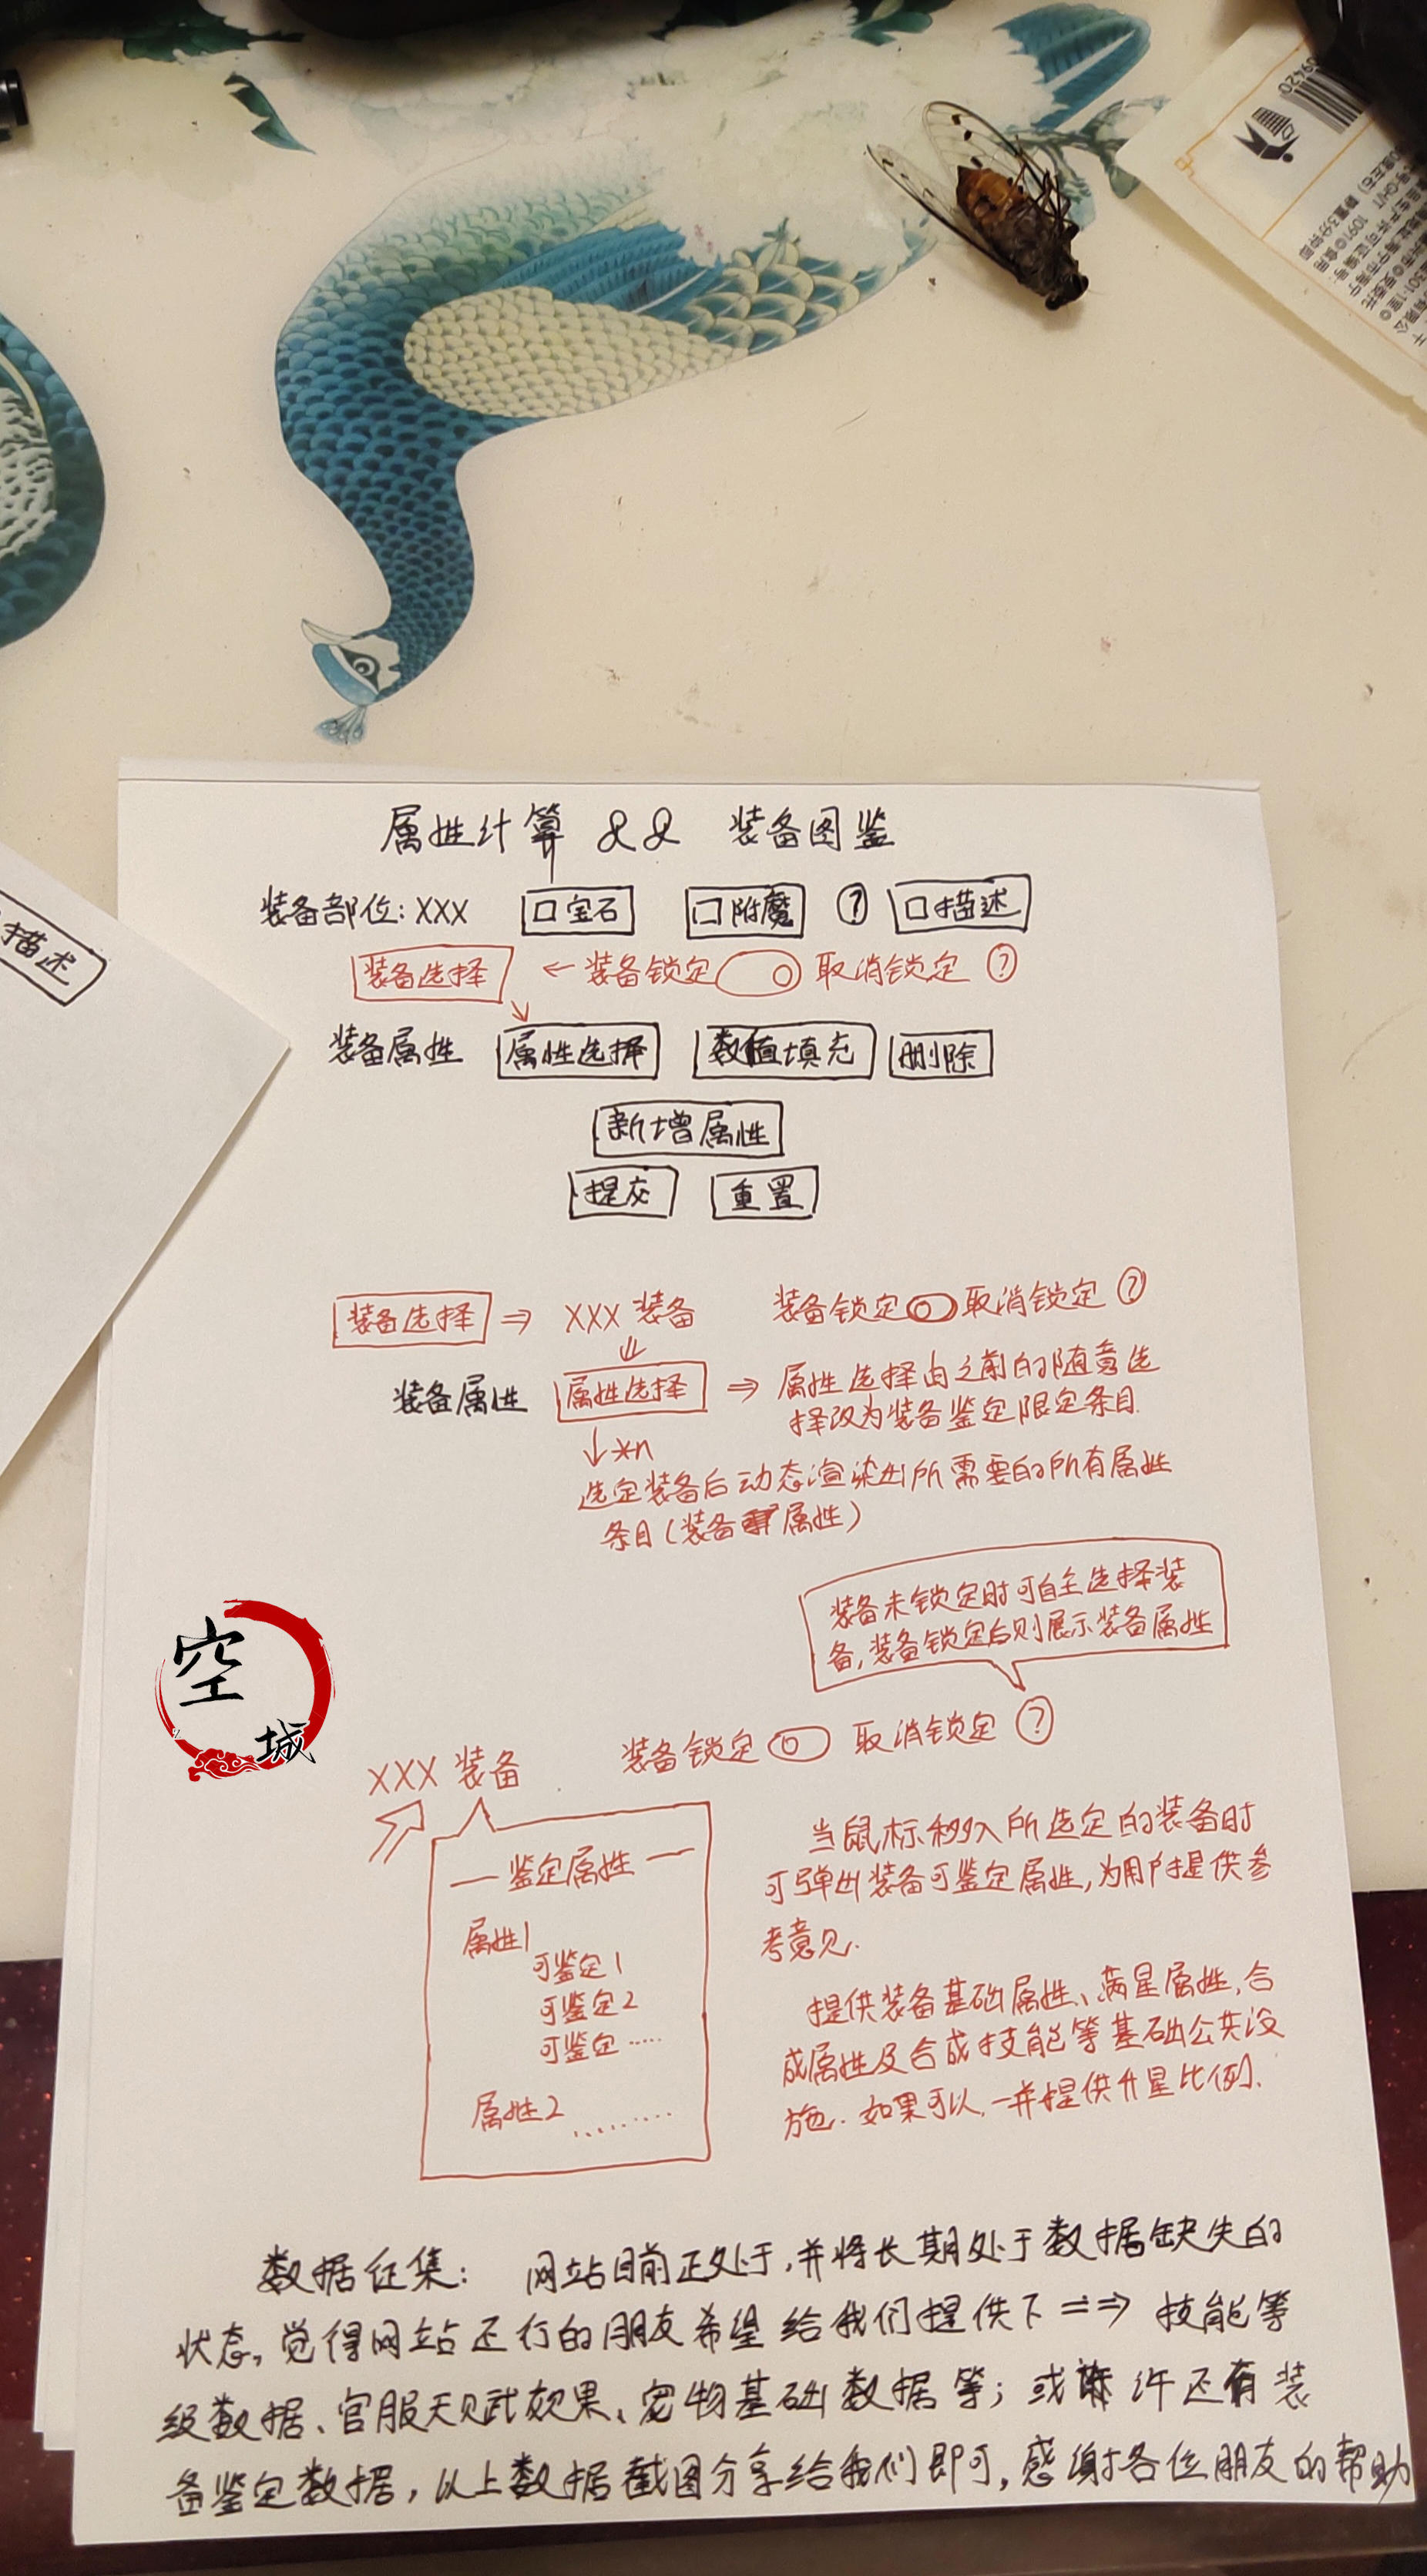 属性计算 && 装备图鉴
装备部位：XXX 口宝石 口附魔 ? 口描述
装备选择 ← 装备锁定 取消锁定 ?
装备属性 属性选择 数值填充 删除
新增属性
提交 重置
描述
装备选择 ⇒ XXX 装备 装备锁定 取消锁定 ?
装备属性 属性选择 ⇒ 属性选择由之前的随意选
择改为装备鉴定限定条目.
↓*n
选定装备后动态渲染出所需要的所有属性
条目（装备 属性）
装备未锁定时可自主选择装
备,装备锁定后则展示装备属性
空城
XXX 装备 装备锁定 取消锁定 ?
— 鉴定属性 —
属性1
可鉴定1
可鉴定2
可鉴定……
属性2 ………
当鼠标移入所选定的装备时
可弹出装备可鉴定属性,为用户提供参
考意见.
提供装备基础属性、满星属性,合
成属性及合成技能等基础公共设
施. 如果可以,一并提供升星比例.
数据征集： 网站目前正处于,并将长期处于数据缺失的
状态,觉得网站还行的朋友希望给我们提供下==⇒ 技能等
级数据、官服天赋效果、宠物基础数据等；或许还有装
备鉴定数据,以上数据截图分享给我们即可,感谢各位朋友的帮助